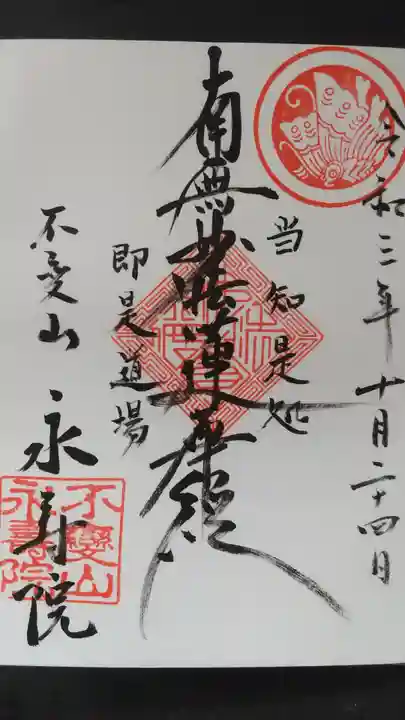 令和三年十月二十四日
当知是処
南無妙法蓮華経
即是道場
不変山
永寿院
不變山
永壽院